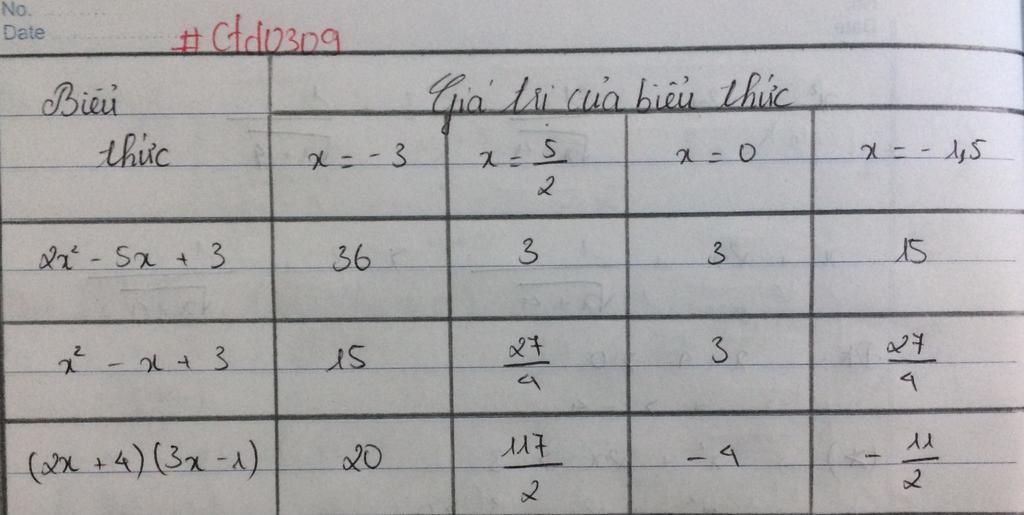 No.
Date
#Ctd0309
Biểu thức
Giá trị của biểu thức
x = -3
x = 5/2
x = 0
x = -1,5
2x² - 5x + 3
36
3
3
15
x² - x + 3
15
27/4
3
27/4
(2x + 4)(3x - 1)
20
117/2
-4
- 11/2